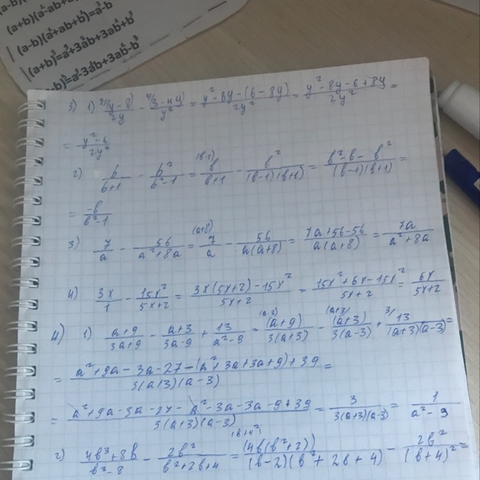 (a-b)(a+b)=a²-b²
(a+b)³=a³+3a²b+3ab²+b³
(a-b)³=a³-3a²b+3ab²-b³
3) 1) (y-8)/2y - (3-4y)/y² = (y²-8y-(6-8y))/2y² = (y²-8y-6+8y)/2y² =
= (y²-6)/2y²
2) b/(b+1) - b²/(b²-1) = (b-1) b/(b+1) - b²/((b-1)(b+1)) = (b²-b-b²)/((b-1)(b+1)) =
= -b/(b²-1)
3) 7/a - 56/(a²+8a) = (a+8) 7/a - 56/(a(a+8)) = (7a+56-56)/(a(a+8)) = 7a/(a²+8a)
4) 3x/1 - 15x²/(5x+2) = (3x(5x+2)-15x²)/(5x+2) = (15x²+6x-15x²)/(5x+2) = 6x/(5x+2)
4) 1) (a+9)/(3a+9) - (a+3)/(3a-9) + 13/(a²-9) = (a+9)/(3(a+3)) - (a+3)/(3(a-3)) + 13/((a+3)(a-3)) =
= (a²+9a-3a-27-(a²+3a+3a+9)+39)/(3(a+3)(a-3)) =
= (a²+9a-3a-27-a²-3a-3a-9+39)/(3(a+3)(a-3)) = 3/(3(a+3)(a-3)) = 1/(a²-9)
2) (4b³+8b)/(b³-8) - 2b²/(b²+2b+4) = (4b(b²+2))/((b-2)(b²+2b+4)) - 2b²/(b+4)² =